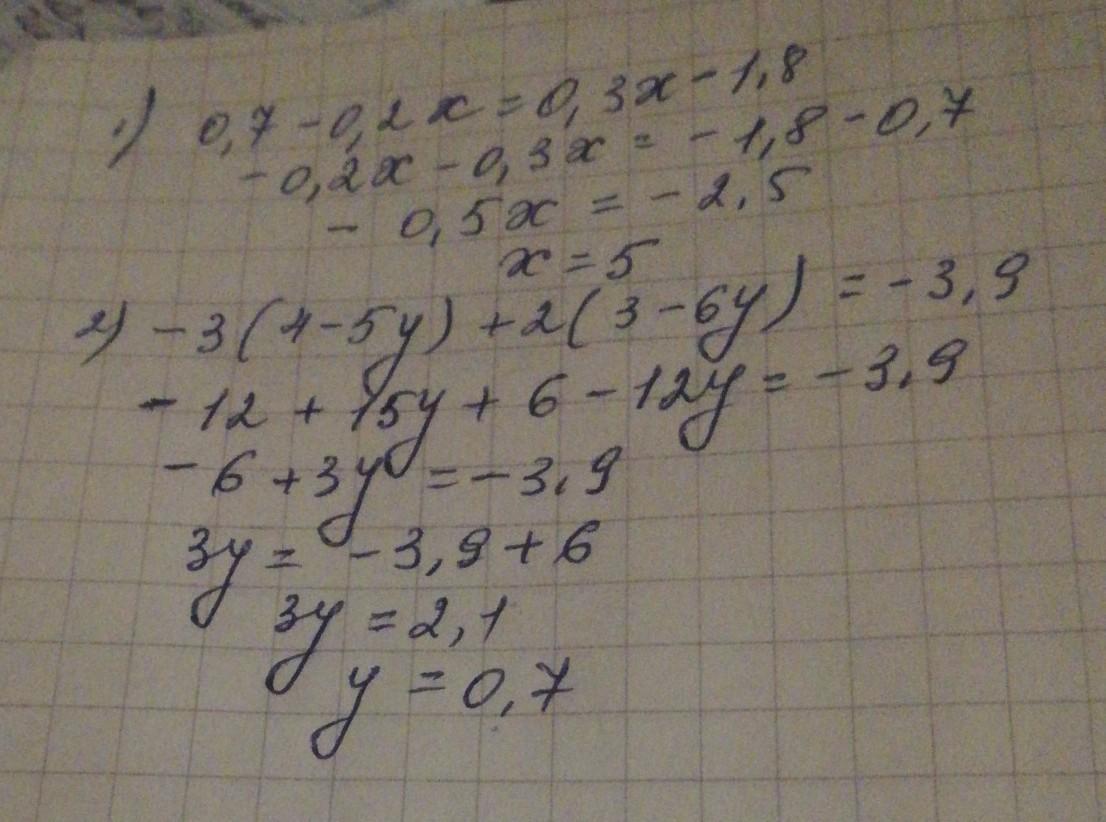 1) 0,7 - 0,2x = 0,3x - 1,8
- 0,2x - 0,3x = - 1,8 - 0,7
- 0,5x = - 2,5
x = 5
2) - 3(4 - 5y) + 2(3 - 6y) = - 3,9
- 12 + 15y + 6 - 12y = - 3,9
- 6 + 3y = - 3,9
3y = - 3,9 + 6
3y = 2,1
y = 0,7